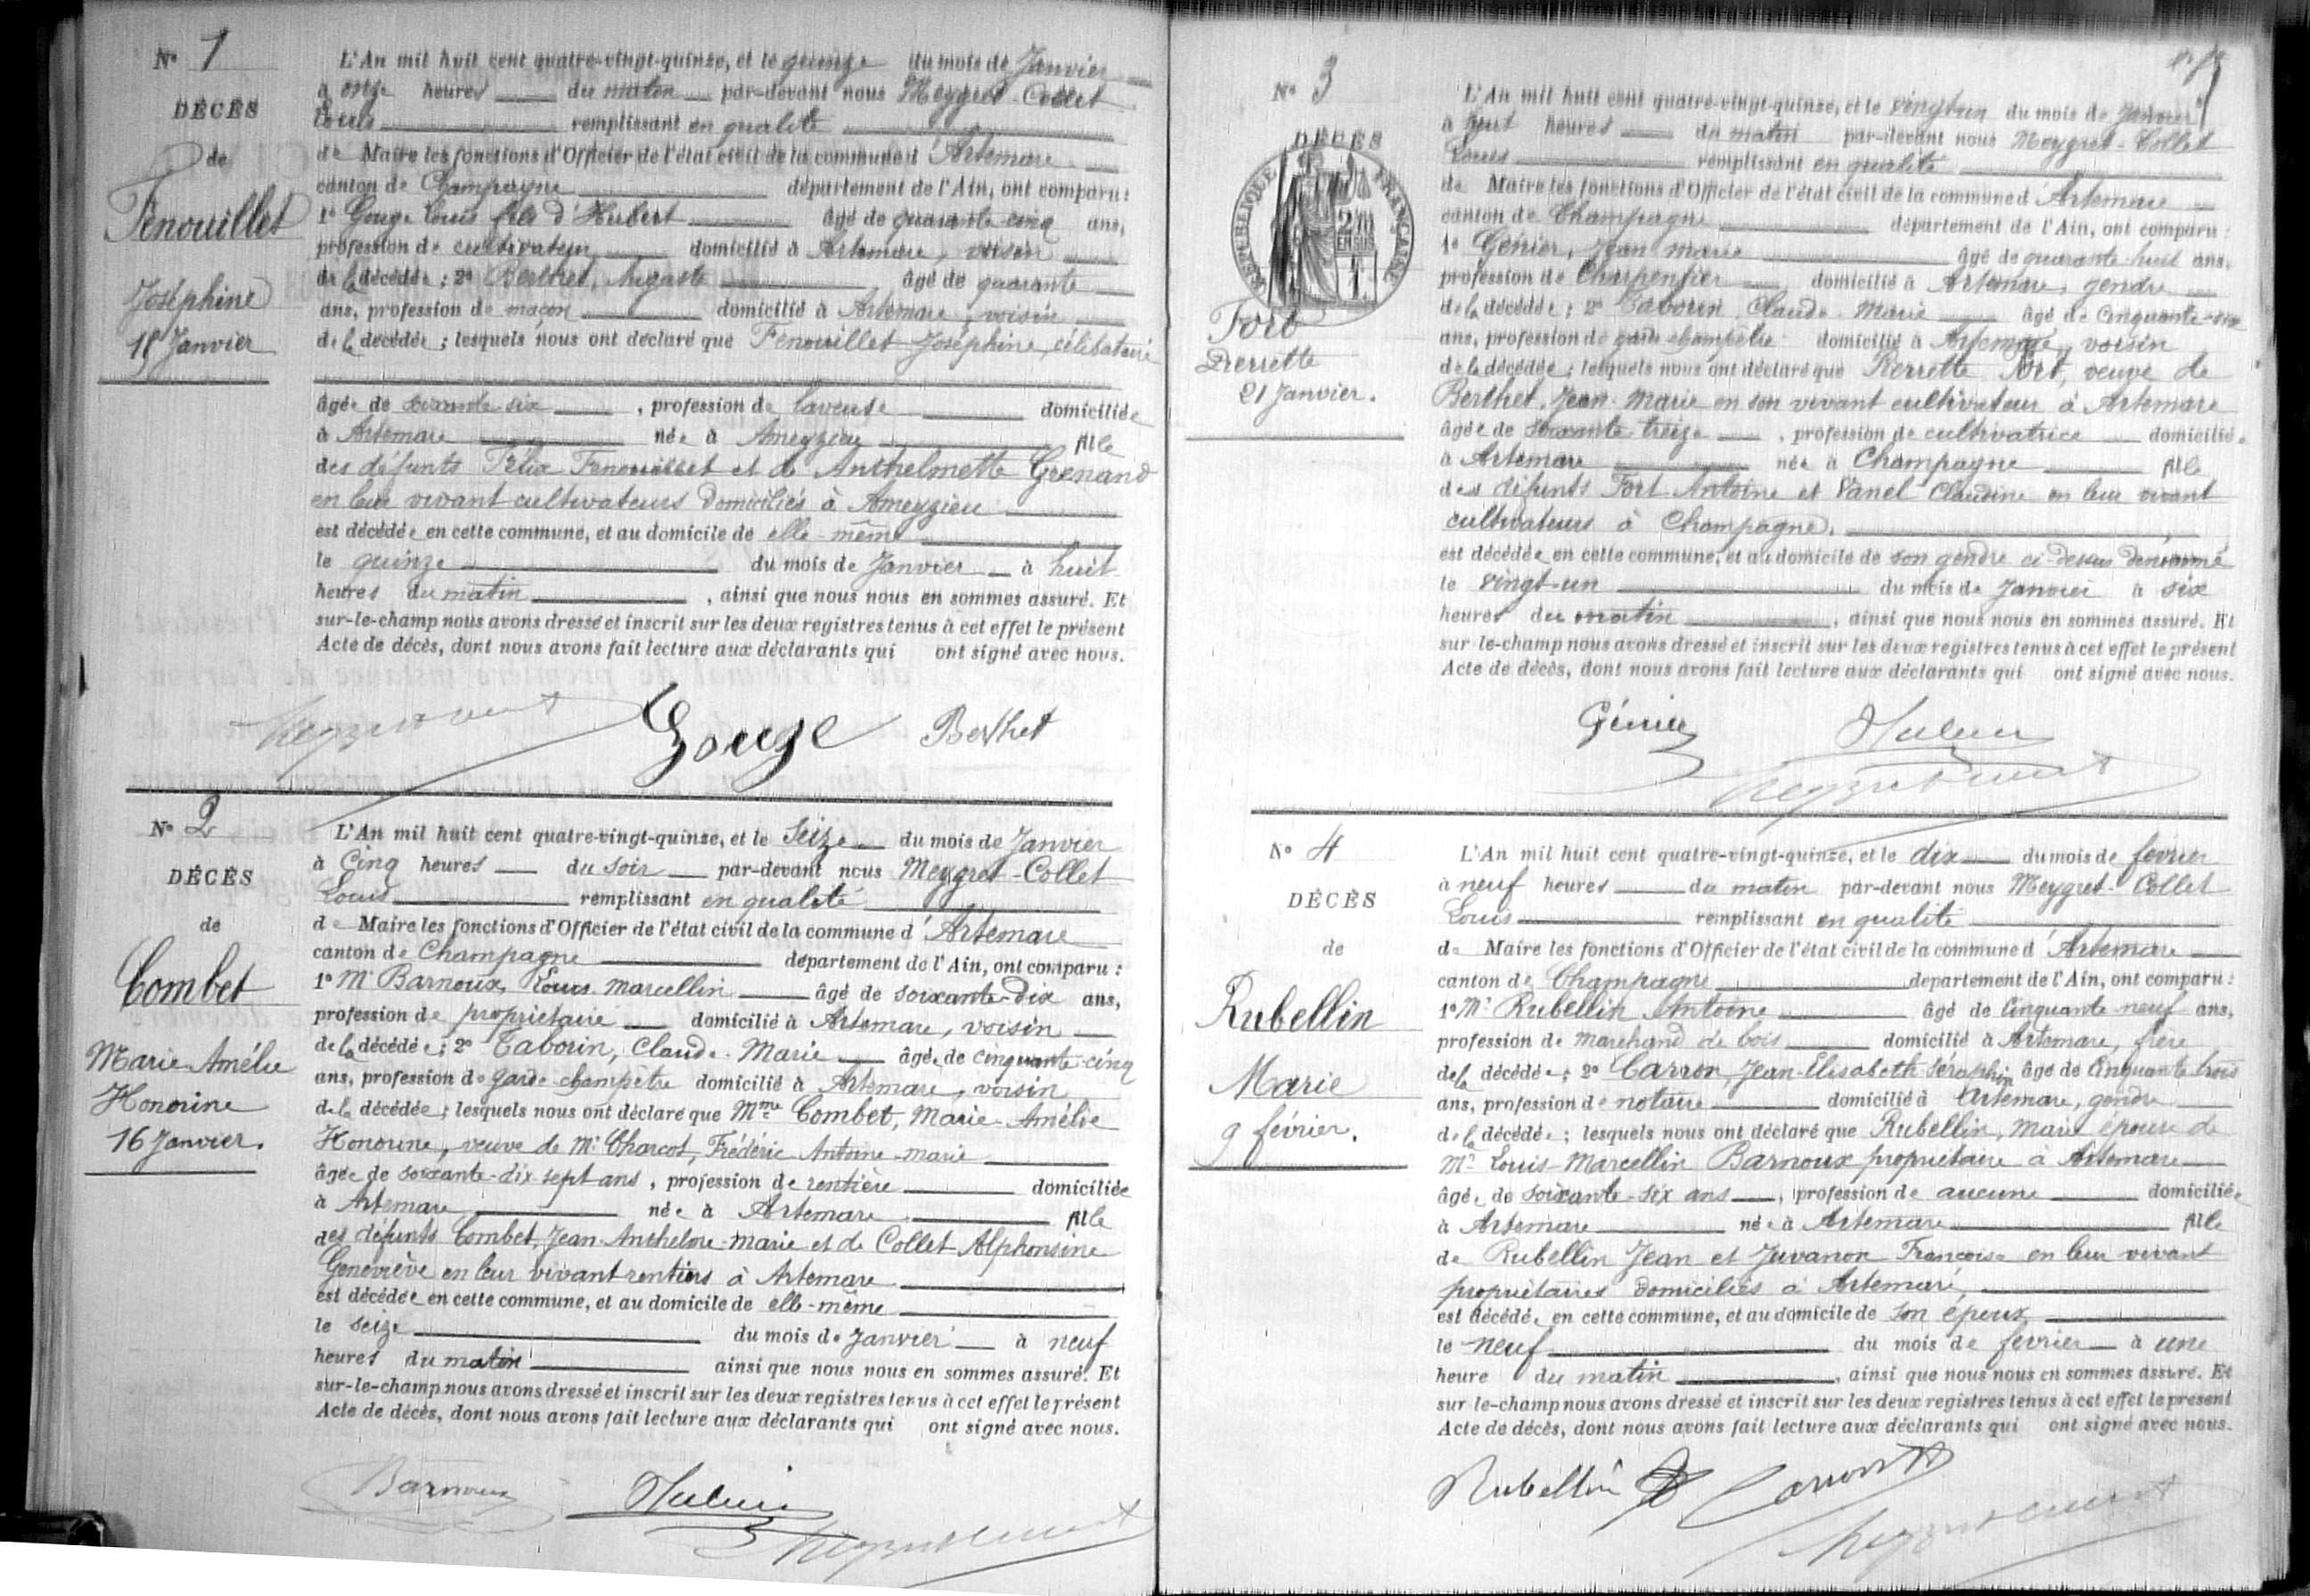 Nº 1
DÉCÈS
de
Fenouillet
Joséphine
15 Janvier
L'An mil huit cent quatre-vingt-quinze, et le quinze du mois de Janvier
à onze heures du matin par-devant nous Meygret-Collet
Louis remplissant en qualité
de Maire les fonctions d'Officier de l'état civil de la commune d'Artemare
canton de Champagne département de l'Ain, ont comparu:
1º Gouge Louis fils d'Hubert âgé de quarante cinq ans,
profession de cultivateur domicilié à Artemare, voisin
de la décédée; 2º Berthet, Auguste âgé de quarante
ans, profession de maçon domicilié à Artemare, voisin
de la décédée; lesquels nous ont déclaré que Fenouillet Joséphine, célibataire
âgée de soixante six, profession de laveuse domiciliée
à Artemare née à Ameyzieu fille
des défunts Félix Fenouillet et de Anthelmette Grenand
en leur vivant cultivateurs domiciliés à Ameyzieu
est décédée en cette commune, et au domicile de elle-même
le quinze du mois de Janvier à huit
heures du matin, ainsi que nous nous en sommes assuré. Et
sur-le-champ nous avons dressé et inscrit sur les deux registres tenus à cet effet le présent
Acte de décès, dont nous avons fait lecture aux déclarants qui ont signé avec nous.
Gouge Berthet
Nº 2
DÉCÈS
de
Combet
Marie-Amélie
Honorine
16 Janvier.
L'An mil huit cent quatre-vingt-quinze, et le Seize du mois de Janvier
à Cinq heures du soir par-devant nous Meygret-Collet
Louis remplissant en qualité
de Maire les fonctions d'Officier de l'état civil de la commune d'Artemare
canton de Champagne département de l'Ain, ont comparu:
1º Mr Barnoux, Louis Marcellin âgé de soixante-dix ans,
profession de propriétaire domicilié à Artemare, voisin
de la décédée; 2º Taborin, Claude-Marie âgé de cinquante-cinq
ans, profession de garde-champêtre domicilié à Artemare, voisin
de la décédée; lesquels nous ont déclaré que Mme Combet, Marie-Amélie
Honorine, veuve de Mr Charcot, Frédéric Antoine-marie
âgée de soixante-dix-sept ans, profession de rentière domiciliée
à Artemare née à Artemare fille
des défunts Combet, Jean-Anthelme-Marie et de Collet Alphonsine
Geneviève en leur vivant rentiers à Artemare
est décédée en cette commune, et au domicile de elle-même
le seize du mois de Janvier à neuf
heures du matin ainsi que nous nous en sommes assuré. Et
sur-le-champ nous avons dressé et inscrit sur les deux registres tenus à cet effet le présent
Acte de décès, dont nous avons fait lecture aux déclarants qui ont signé avec nous.
Barnoux
Nº 3
DÉCÈS
RÉPUBLIQUE FRANÇAISE
EN SUS
Fort
Pierrette
21 Janvier.
L'An mil huit cent quatre-vingt-quinze, et le vingt-un du mois de Janvier
à huit heures du matin par-devant nous Meygret-Collet
Louis remplissant en qualité
de Maire les fonctions d'Officier de l'état civil de la commune d'Artemare
canton de Champagne département de l'Ain, ont comparu:
1º Génier, Jean marie âgé de quarante-huit ans,
profession de Charpentier domicilié à Artemare, gendre
de la décédée; 2º Taborin, Claude-Marie âgé de Cinquante-six
ans, profession de garde champêtre domicilié à Artemare, voisin
de la décédée; lesquels nous ont déclaré que Pierrette Fort, veuve de
Berthet, Jean-Marie en son vivant cultivateur à Artemare
âgée de soixante-treize, profession de cultivatrice domiciliée
à Artemare née à Champagne fille
des défunts Fort Antoine et Vanel Claudine en leur vivant
cultivateurs à Champagne.
est décédée en cette commune, et au domicile de son gendre ci-dessus dénommé
le vingt-un du mois de Janvier à six
heures du matin, ainsi que nous nous en sommes assuré. Et
sur-le-champ nous avons dressé et inscrit sur les deux registres tenus à cet effet le présent
Acte de décès, dont nous avons fait lecture aux déclarants qui ont signé avec nous.
Génier
Nº 4
DÉCÈS
de
Rubellin
Marie
9 février.
L'An mil huit cent quatre-vingt-quinze, et le dix du mois de février
à neuf heures du matin par-devant nous Meygret-Collet
Louis remplissant en qualité
de Maire les fonctions d'Officier de l'état civil de la commune d'Artemare
canton de Champagne département de l'Ain, ont comparu:
1º Mr Rubellin Antoine âgé de Cinquante-neuf ans,
profession de marchand de bois domicilié à Artemare, frère
de la décédée; 2º Carron, Jean-Elisabeth-Séraphin âgé de Cinquante trois
ans, profession de notaire domicilié à Artemare, gendre
de la décédée; lesquels nous ont déclaré que Rubellin, Marie épouse de
Mr Louis-Marcellin Barnoux propriétaire à Artemare
âgée de soixante-six ans, profession de aucune domiciliée
à Artemare née à Artemare fille
de Rubellin Jean et Juvanon Françoise en leur vivant
propriétaires domiciliés à Artemare,
est décédée en cette commune, et au domicile de son époux
le neuf du mois de février à une
heure du matin, ainsi que nous nous en sommes assuré. Et
sur-le-champ nous avons dressé et inscrit sur les deux registres tenus à cet effet le présent
Acte de décès, dont nous avons fait lecture aux déclarants qui ont signé avec nous.
Rubellin Carron